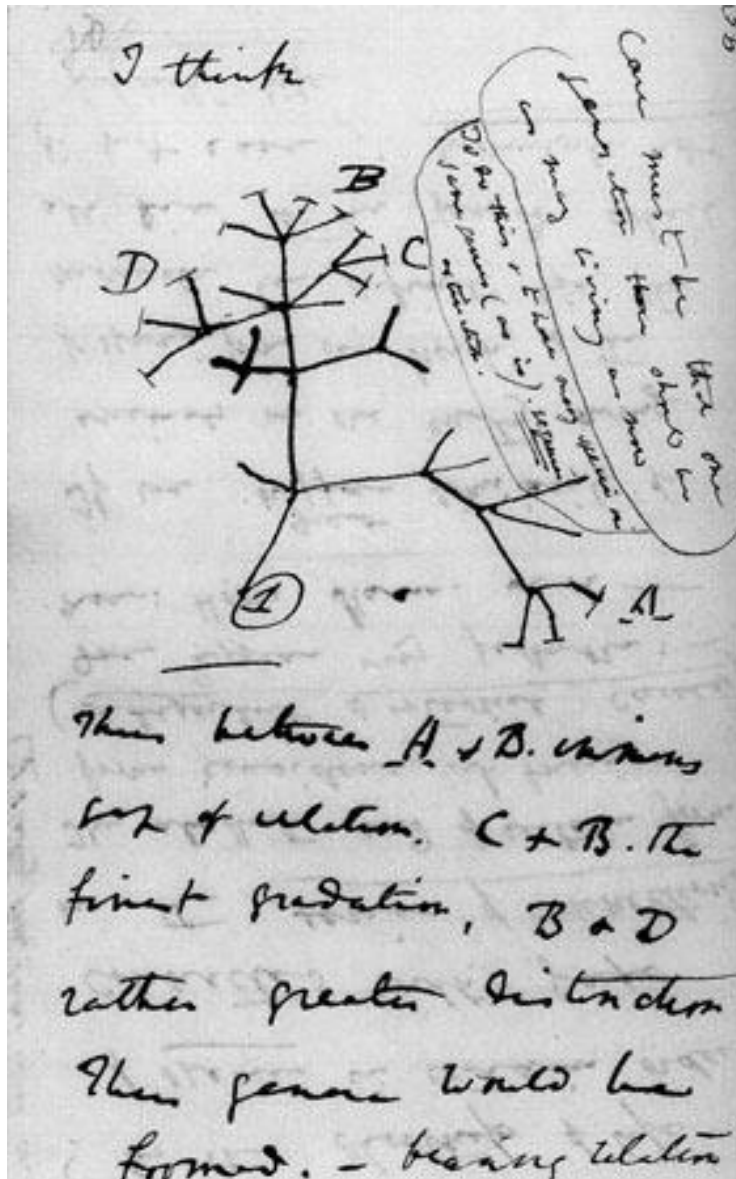 I think
Case must be that one
generation then should be
as many living as now
To do this & to have many species in
same genus (as is). requires
extinction.
B
C
D
1
A
Thus between A & B. immens
gap of relation. C & B. The
finest gradation, B & D
rather greater distinction
Thus genera would be
formed. — bearing relation